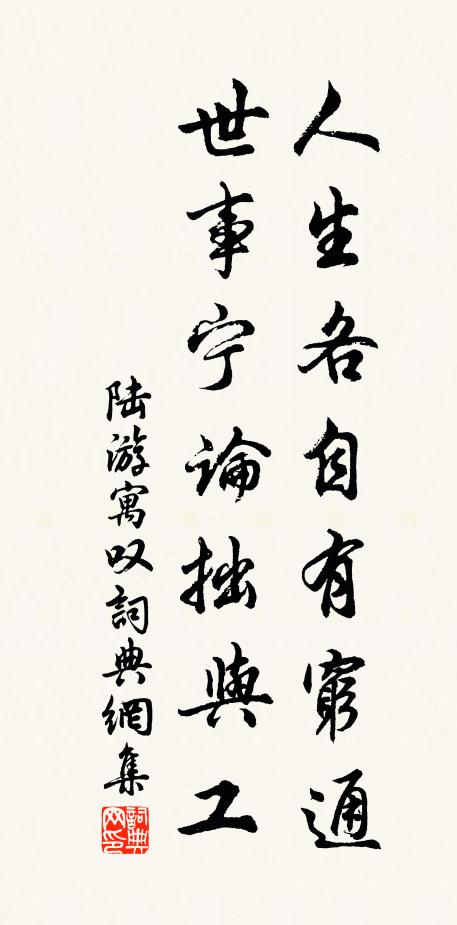 人生各自有窮通
世事宁論拙與工
陸游寓叹詞典網集
詞典网印